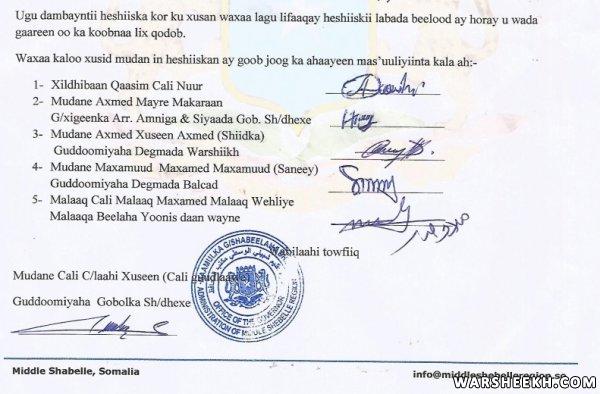 Ugu dambayntii heshiiska kor ku xusan waxaa lagu lifaaqay heshiiskii labada beelood ay horay u wada
gaareen oo ka koobnaa lix qodob.
Waxaa kaloo xusid mudan in heshiiskan ay goob joog ka ahaayeen mas'uuliyiinta kala ah:-
1- Xildhibaan Qaasim Cali Nuur
2- Mudane Axmed Mayre Makaraan
G/xigeenka Arr. Amniga & Siyaada Gob. Sh/dhexe
3- Mudane Axmed Xuseen Axmed (Shiidka)
Guddoomiyaha Degmada Warshiikh
4- Mudane Maxamuud Maxamed Maxamuud (Saneey)
Guddoomiyaha Degmada Balcad
5- Malaaq Cali Malaaq Maxamed Malaaq Wehliye
Malaaqa Beelaha Yoonis daan wayne
Wabilaahi towfiiq
Mudane Cali C/laahi Xuseen (Cali
Guddoomiyaha Gobolka Sh/dhexe
OFFICE OF THE GOVERNOR
ADMINISTRATION OF MIDDLE SHEBELLE REGION
Middle Shabelle, Somalia
info@middleshabelleregion.so
WARSHEEKH.COM